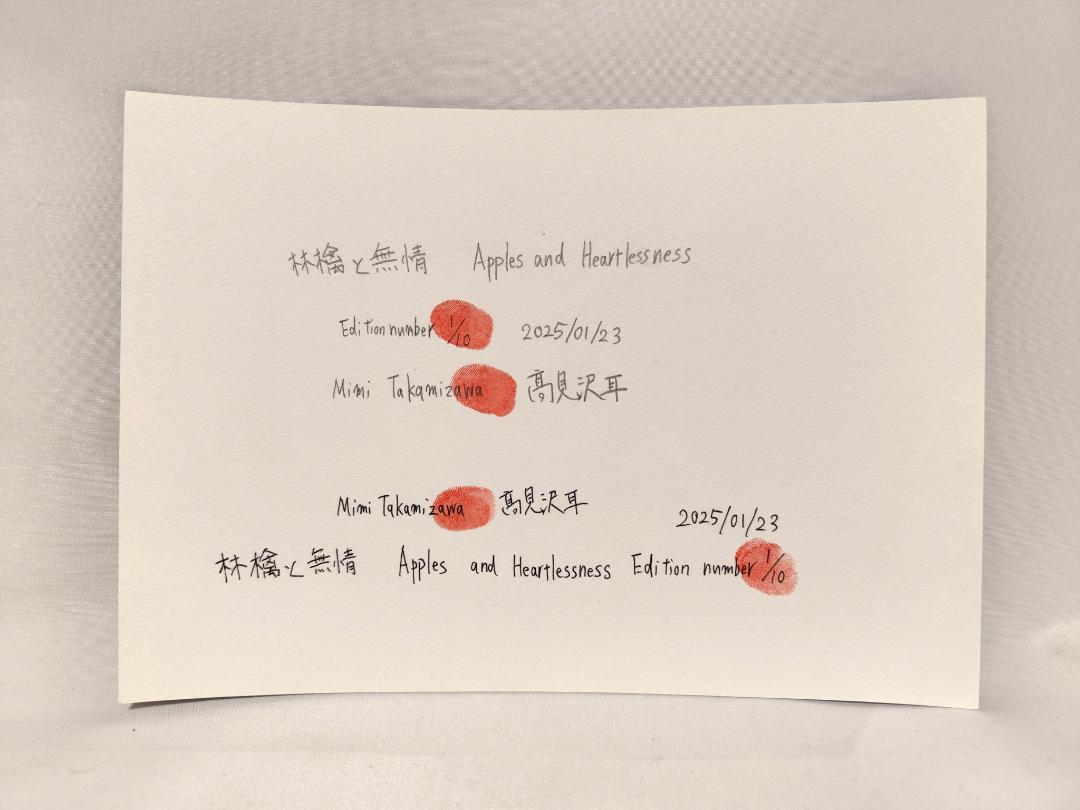 林檎と無情 Apples and Heartlessness
Edition number 1/10 2025/01/23
Mimi Takamizawa 高見沢耳
Mimi Takamizawa 高見沢耳
2025/01/23
林檎と無情 Apples and Heartlessness Edition number 1/10